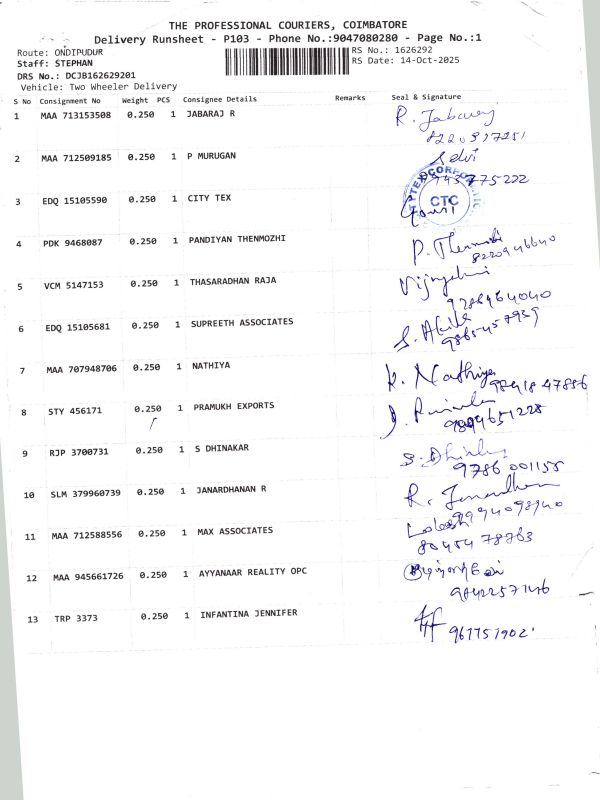 THE PROFESSIONAL COURIERS, COIMBATORE
Delivery Runsheet - P103 - Phone No.:9047080280 - Page No.:1
Route: ONDIPUDUR
RS No.: 1626292
Staff: STEPHAN
RS Date: 14-Oct-2025
DRS No.: DCJB162629201
Vehicle: Two Wheeler Delivery
S No Consignment No Weight PCS Consignee Details Remarks Seal & Signature
1 MAA 713153508 0.250 1 JABARAJ R R. Jabaraj
2 MAA 712509185 0.250 1 P MURUGAN Selvi
3 EDQ 15105590 0.250 1 CITY TEX CTC
4 PDK 9468087 0.250 1 PANDIYAN THENMOZHI P. Thenmozhi
8220946640
5 VCM 5147153 0.250 1 THASARADHAN RAJA
9788964040
6 EDQ 15105681 0.250 1 SUPREETH ASSOCIATES
9865457939
7 MAA 707948706 0.250 1 NATHIYA K. Nathiya 98418 47886
8 STY 456171 0.250 1 PRAMUKH EXPORTS
9894651228
9 RJP 3700731 0.250 1 S DHINAKAR S. Dhinakar
9786 001155
10 SLM 379960739 0.250 1 JANARDHANAN R R. Janardhan
9994098940
11 MAA 712588556 0.250 1 MAX ASSOCIATES Lokesh
80454 78763
12 MAA 945661726 0.250 1 AYYANAAR REALITY OPC
9842257146
13 TRP 3373 0.250 1 INFANTINA JENNIFER
961751902